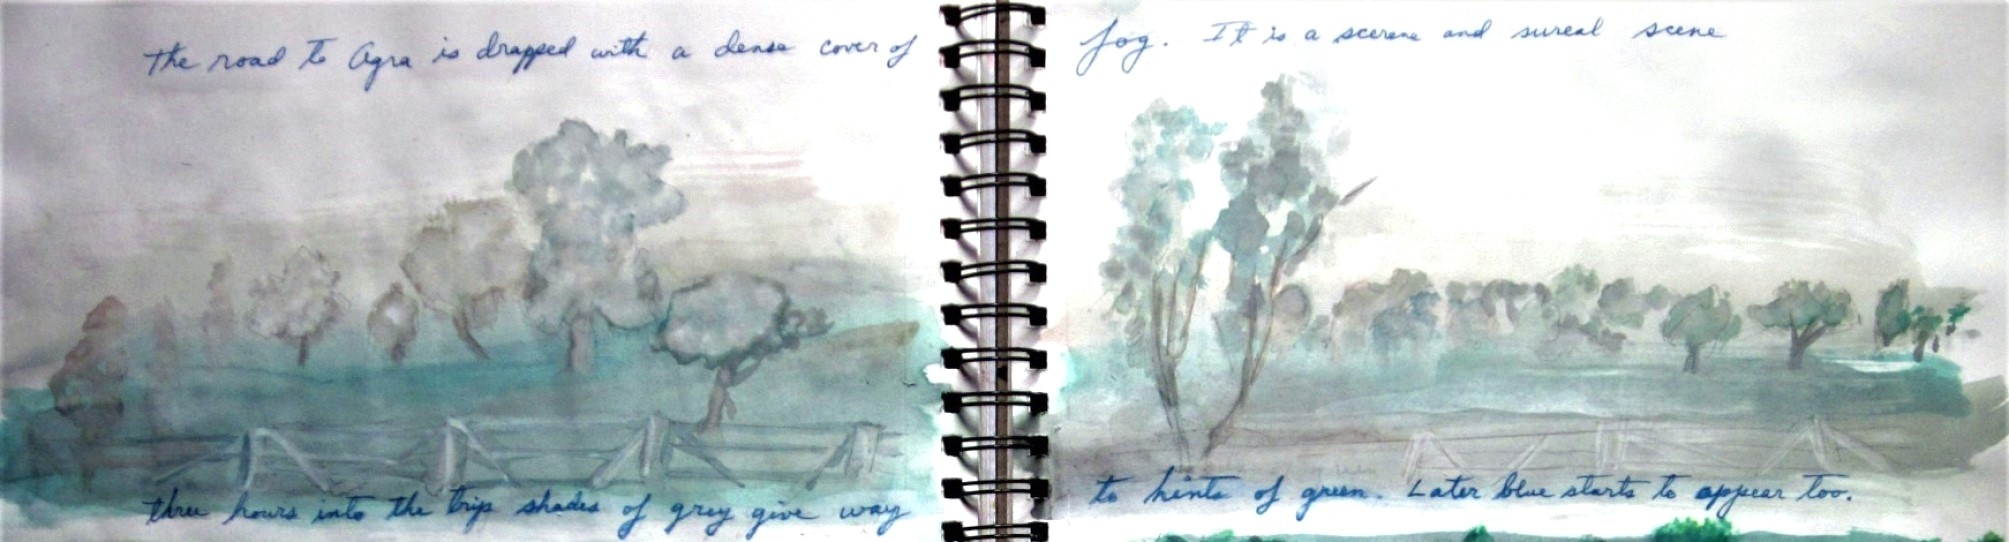 The road to Agra is drapped with a dense cover of fog. It is a scerene and sureal scene
three hours into the trip shades of grey give way to hints of green. Later blue starts to appear too.